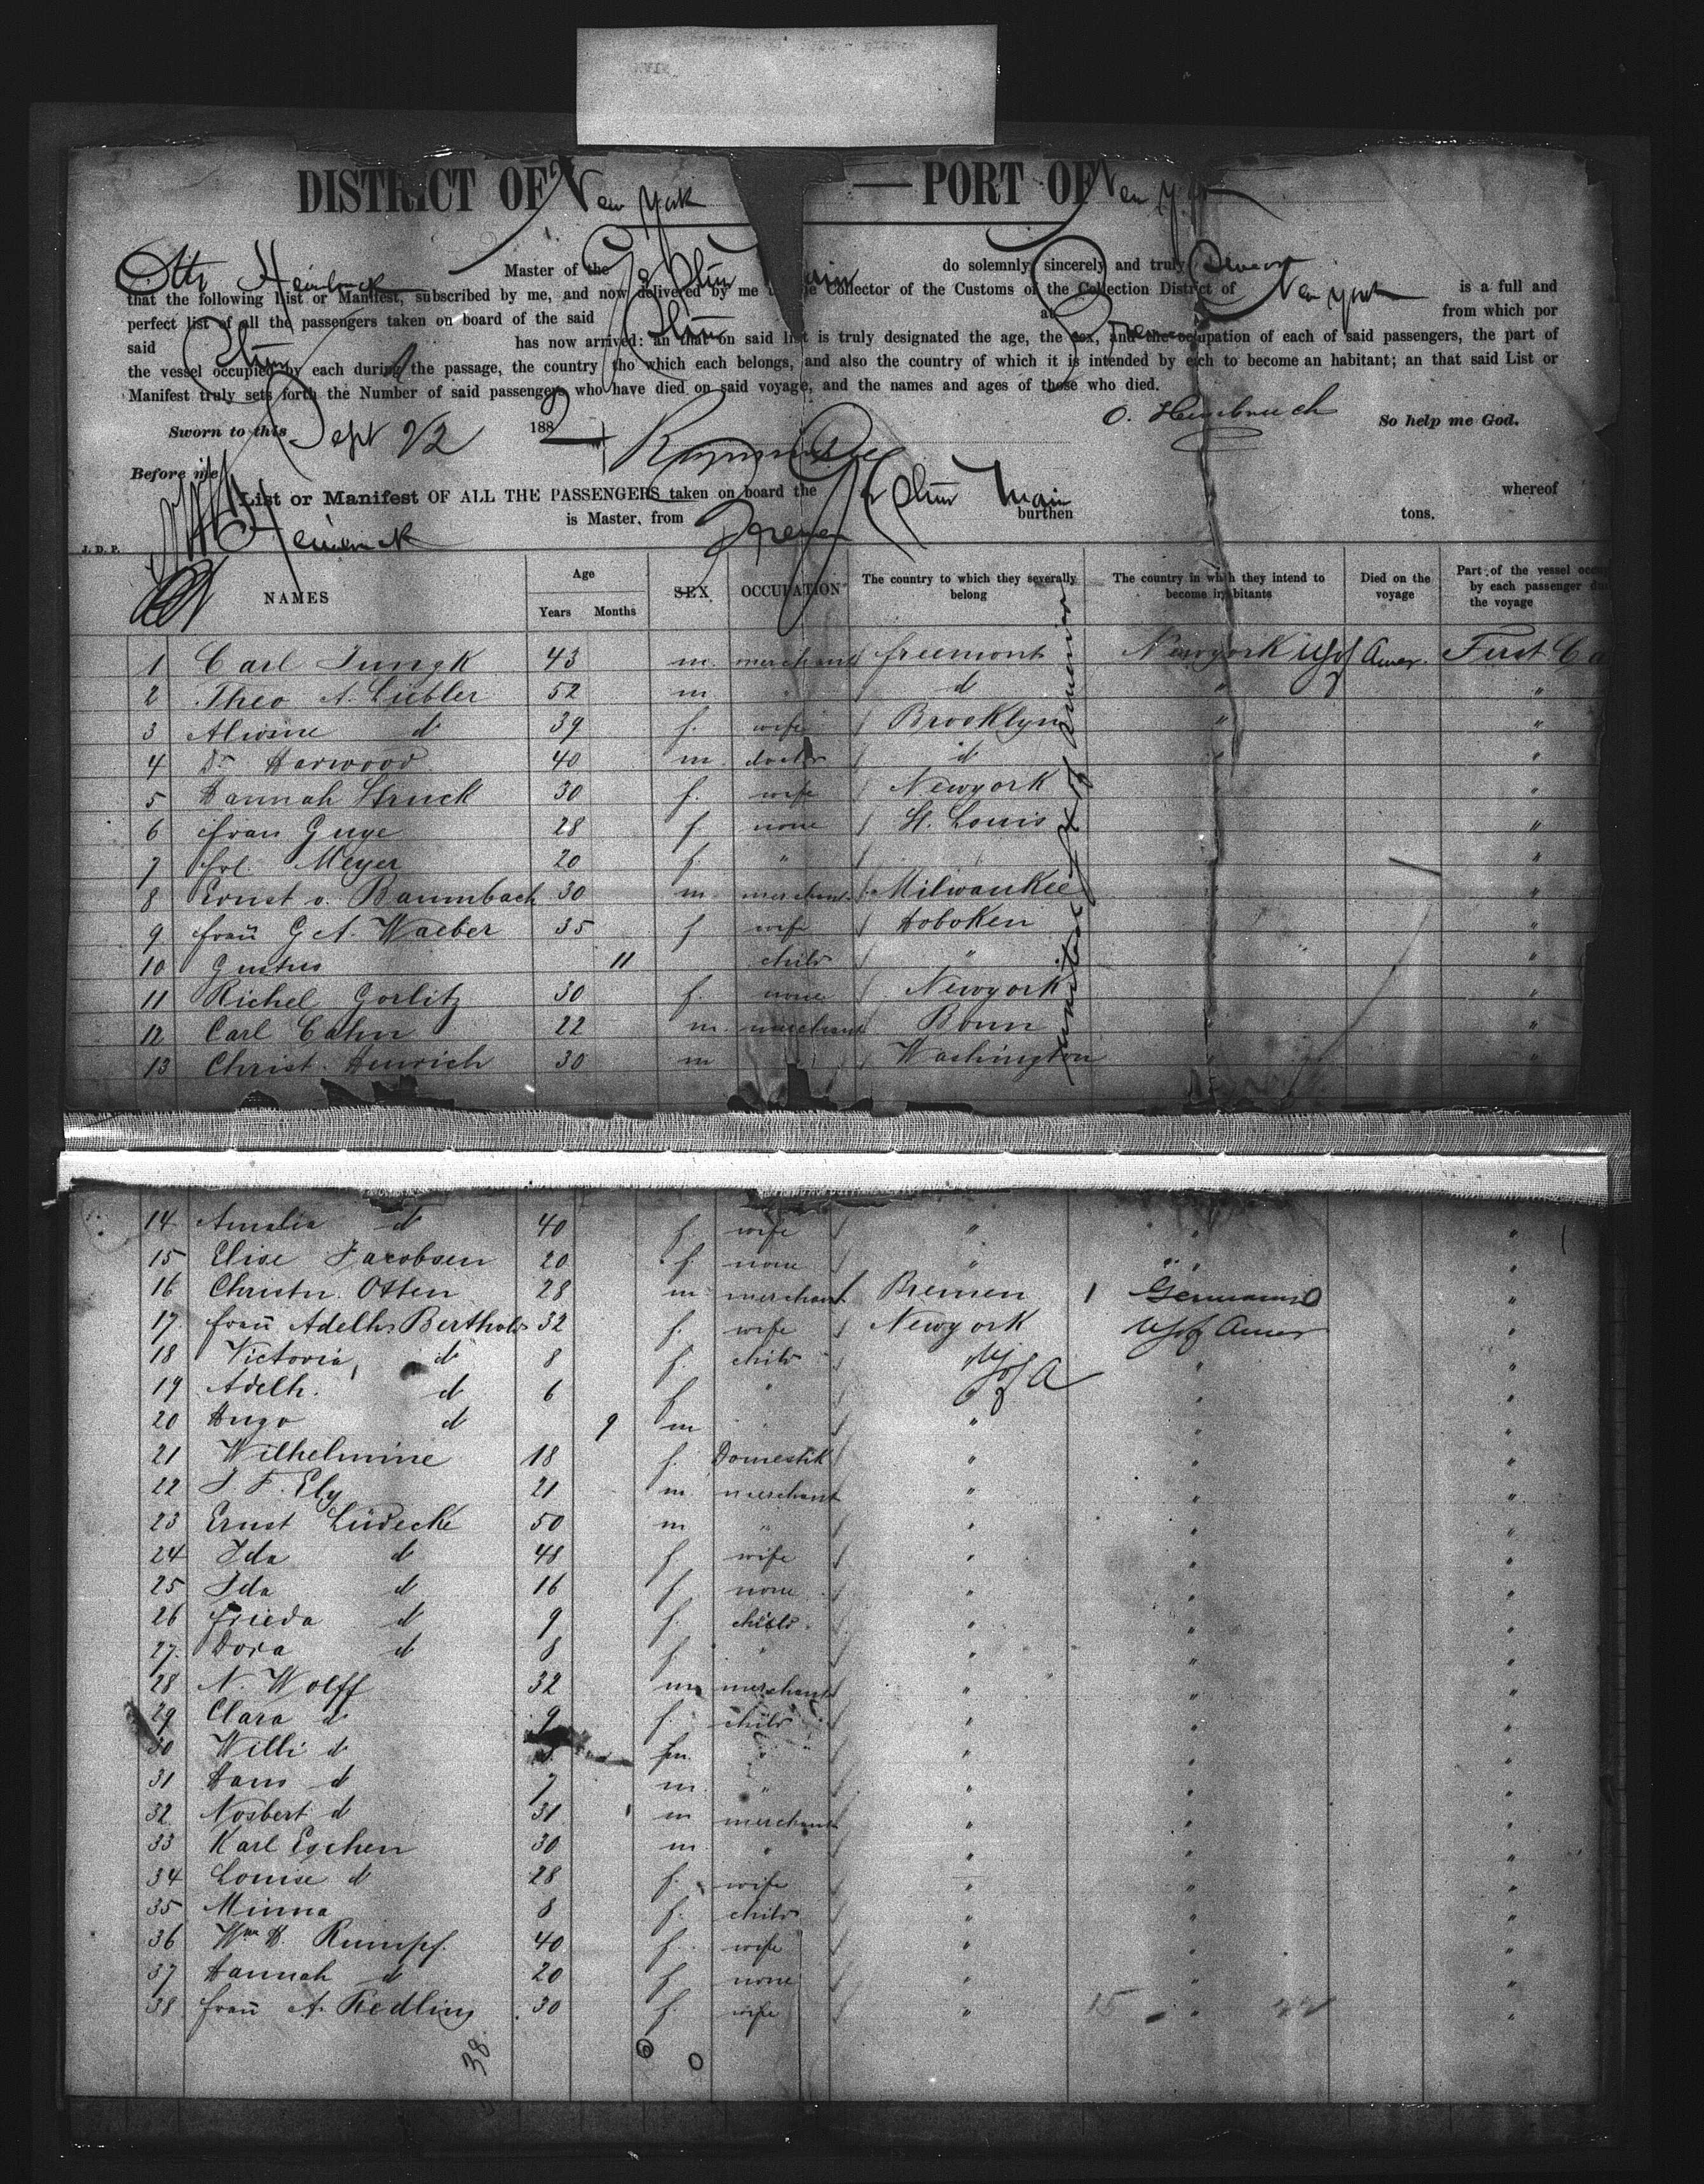 DISTRICT OF New York — PORT OF New York
Otto Heimbruch Master of the Str Main do solemnly sincerely and truly Swear
that the following List or Manifest, subscribed by me, and now delivered by me to the Collector of the Customs of the Collection District of New York is a full and
perfect list of all the passengers taken on board of the said Str at Bremen from which por
said Str has now arrived: an that on said list is truly designated the age, the sex, and the occupation of each of said passengers, the part of
the vessel occupied by each during the passage, the country tho which each belongs, and also the country of which it is intended by each to become an habitant; an that said List or
Manifest truly sets forth the Number of said passengers who have died on said voyage, and the names and ages of those who died.
O. Heimbruch So help me God.
Sworn to this Sept 22 1882
Before me
List or Manifest OF ALL THE PASSENGERS taken on board the Str Main whereof
Heimbruch is Master, from Bremen burthen tons.
J. D. P.
NAMES Age Years Months SEX OCCUPATION The country to which they severally belong The country in which they intend to become inhabitants Died on the voyage Part of the vessel occup by each passenger du the voyage
1 Carl Jungk 43 m. merchant freemont Newyork U S of Amer. First Ca
2 Theo A. Liebler 52 m " d " "
3 Alwine d 39 f. wife Brooklyn " "
4 Dr Harwood 40 m doctor d " "
5 Hannah Struck 30 f. wife Newyork " "
6 frau Guye 28 f none St. Louis " "
7 frl. Meyer 20 f. " " "
8 Ernst v. Baumbach 30 m merchant Milwaukee " "
9 frau G A. Waeber 35 f wife Hoboken "
10 Gustus 11 child " " "
11 Richel Gorlitz 30 f. none Newyork "
12 Carl Cahn 22 m. merchant Bonn " "
13 Christ. Heurich 30 m " Washington " "
United St of America
14 Amalia d 40 f. wife " " "
15 Elise Jacobsen 20 f. none " " "
16 Christn. Otten 28 m merchant Bremen 1 Germany "
17 frau Adelh. Berthold 32 f. wife Newyork U S of Amer "
18 Victoria d 8 f. child U S of A " "
19 Adelh. d 6 f " " "
20 Hugo d 9 m " " " "
21 Wilhelmine 18 f. Domestik " " "
22 J F. Ely 21 m merchant " " "
23 Ernst Lüdecke 50 m " " " "
24 Ida d 48 f wife " " "
25 Ida d 16 f none " " "
26 frieda d 9 f. child " " "
27 Dora d 8 f " " " "
28 N. Wolff 32 m merchant " " "
29 Clara d 9 f. child " " "
30 Willi d m " " " "
31 Hans d 7 m " " " "
32 Nosbert d 31 m merchant " " "
33 Karl Eschen 30 m " " " "
34 Louise d 28 f. wife " " "
35 Minna 8 f. child " " "
36 Wm H. Rumpf. 40 f wife " " "
37 Hannah d 20 f none " " "
38 frau A. Redling 30 f. wife " 15 " "
38 6 0